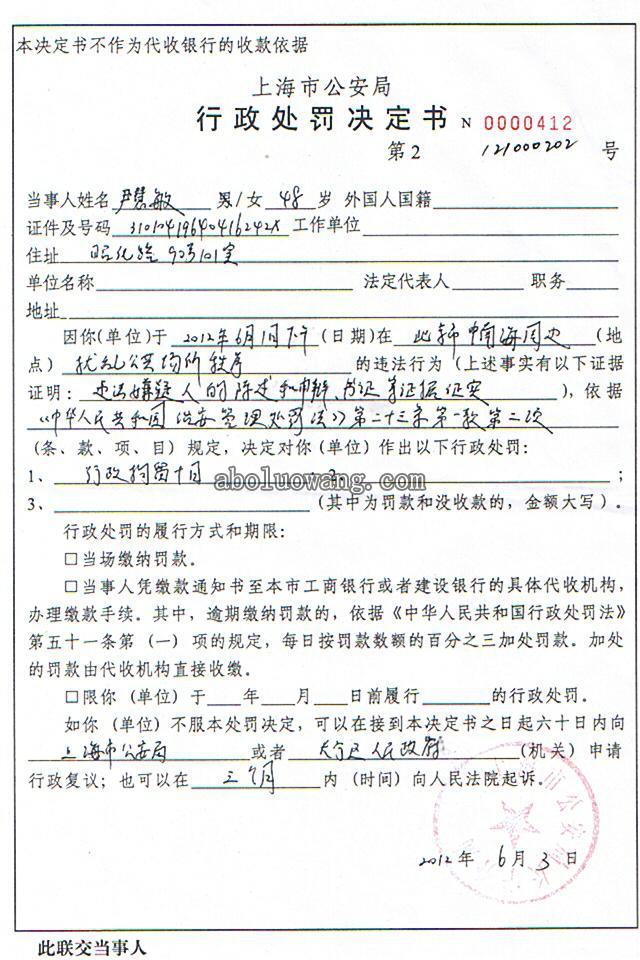 本决定书不作为代收银行的收款依据
上海市公安局
行政处罚决定书 N 0000412
第2 121000202 号
当事人姓名 尹慧敏 男/女 48 岁 外国人国籍
证件及号码 31010419640416242X 工作单位
住址 昭化路 90号101室
单位名称 法定代表人 职务
地址
因你(单位)于 2012年6月1日下午 (日期)在 北京市中南海周边 (地
点) 扰乱公共场所秩序 的违法行为(上述事实有以下证据
证明: 违法嫌疑人的陈述和申辩、书证等证据证实 ),依据
《中华人民共和国治安管理处罚法》第二十三条第一款第二项
(条、款、项、目)规定,决定对你(单位)作出以下行政处罚:
1、 行政拘留十日 2、 ;
aboluowang.com
3、 (其中为罚款和没收款的,金额大写)。
行政处罚的履行方式和期限:
□当场缴纳罚款。
□当事人凭缴款通知书至本市工商银行或者建设银行的具体代收机构,
办理缴款手续。其中,逾期缴纳罚款的,依据《中华人民共和国行政处罚法》
第五十一条第(一)项的规定,每日按罚款数额的百分之三加处罚款。加处
的罚款由代收机构直接收缴。
□限你(单位)于 年 月 日前履行 的行政处罚。
如你(单位)不服本处罚决定,可以在接到本决定书之日起六十日内向
上海市公安局 或者 长宁区人民政府 (机关)申请
行政复议;也可以在 三个月 内(时间)向人民法院起诉。
2012 年 6 月 3 日
此联交当事人